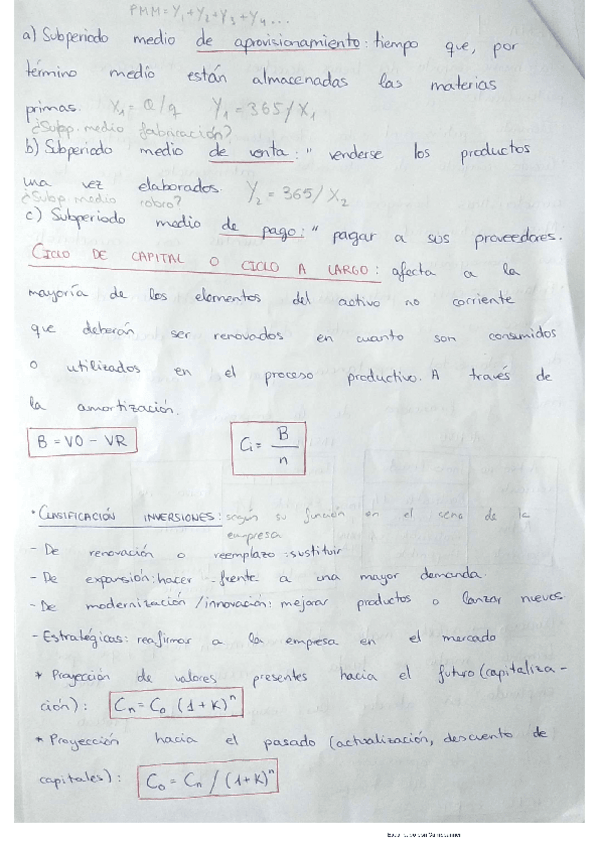 PMM = Y1 + Y2 + Y3 + Y4 ...
a) Subperiodo medio de aprovisionamiento: tiempo que, por
término medio están almacenadas las materias
primas. X1 = Q/q Y1 = 365/X1
¿Subp. medio fabricación?
b) Subperiodo medio de venta: " venderse los productos
una vez elaborados. Y2 = 365/X2
¿Subp medio cobro?
c) Subperiodo medio de pago: " pagar a sus proveedores.
CICLO DE CAPITAL O CICLO A LARGO: afecta a la
mayoría de los elementos del activo no corriente
que deberán ser renovados en cuanto son consumidos
o utilizados en el proceso productivo. A través de
la amortización.
B = VO - VR Ci = B/n
· CLASIFICACIÓN INVERSIONES: según su función en el seno de la
empresa
- De renovación o reemplazo: sustituir
- De expansión: hacer frente a una mayor demanda.
- De modernización/innovación: mejorar productos o lanzar nuevos.
- Estratégicas: reafirmar a la empresa en el mercado
* Proyección de valores presentes hacia el futuro (capitaliza-
ción): Cn = C0 (1+K)^n
* Proyección hacia el pasado (actualización, descuento de
capitales): C0 = Cn / (1+K)^n